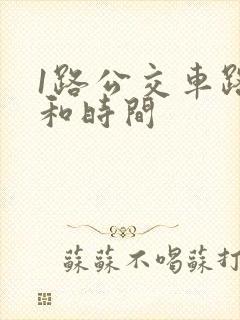 1路公交車路
和時間
蘇蘇不喝蘇打